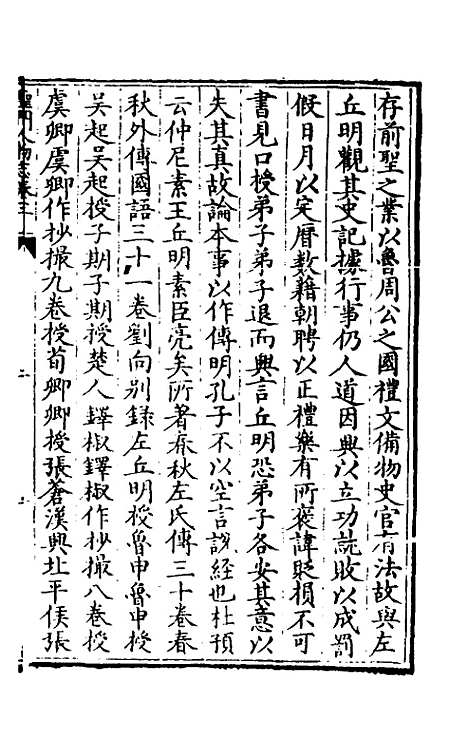 存前聖之業以魯周公之國禮文備物史官有法故與左
丘明觀其史記據行事仍人道因興以立功就敗以成罰
假日月以定曆數藉朝聘以正禮樂有所褒諱貶損不可
書見口授弟子弟子退而異言丘明恐弟子各安其意以
失其真故論本事以作傳明孔子不以空言說經也杜預
云仲尼素王丘明素臣亮矣所著春秋左氏傳三十卷春
秋外傳國語三十一卷劉向別錄左丘明授魯申魯申授
吳起吳起授子期子期授楚人鐸椒鐸椒作抄撮八卷授
虞卿虞卿作抄撮九卷授荀卿卿授張蒼漢興北平侯張
聖門人物志卷三